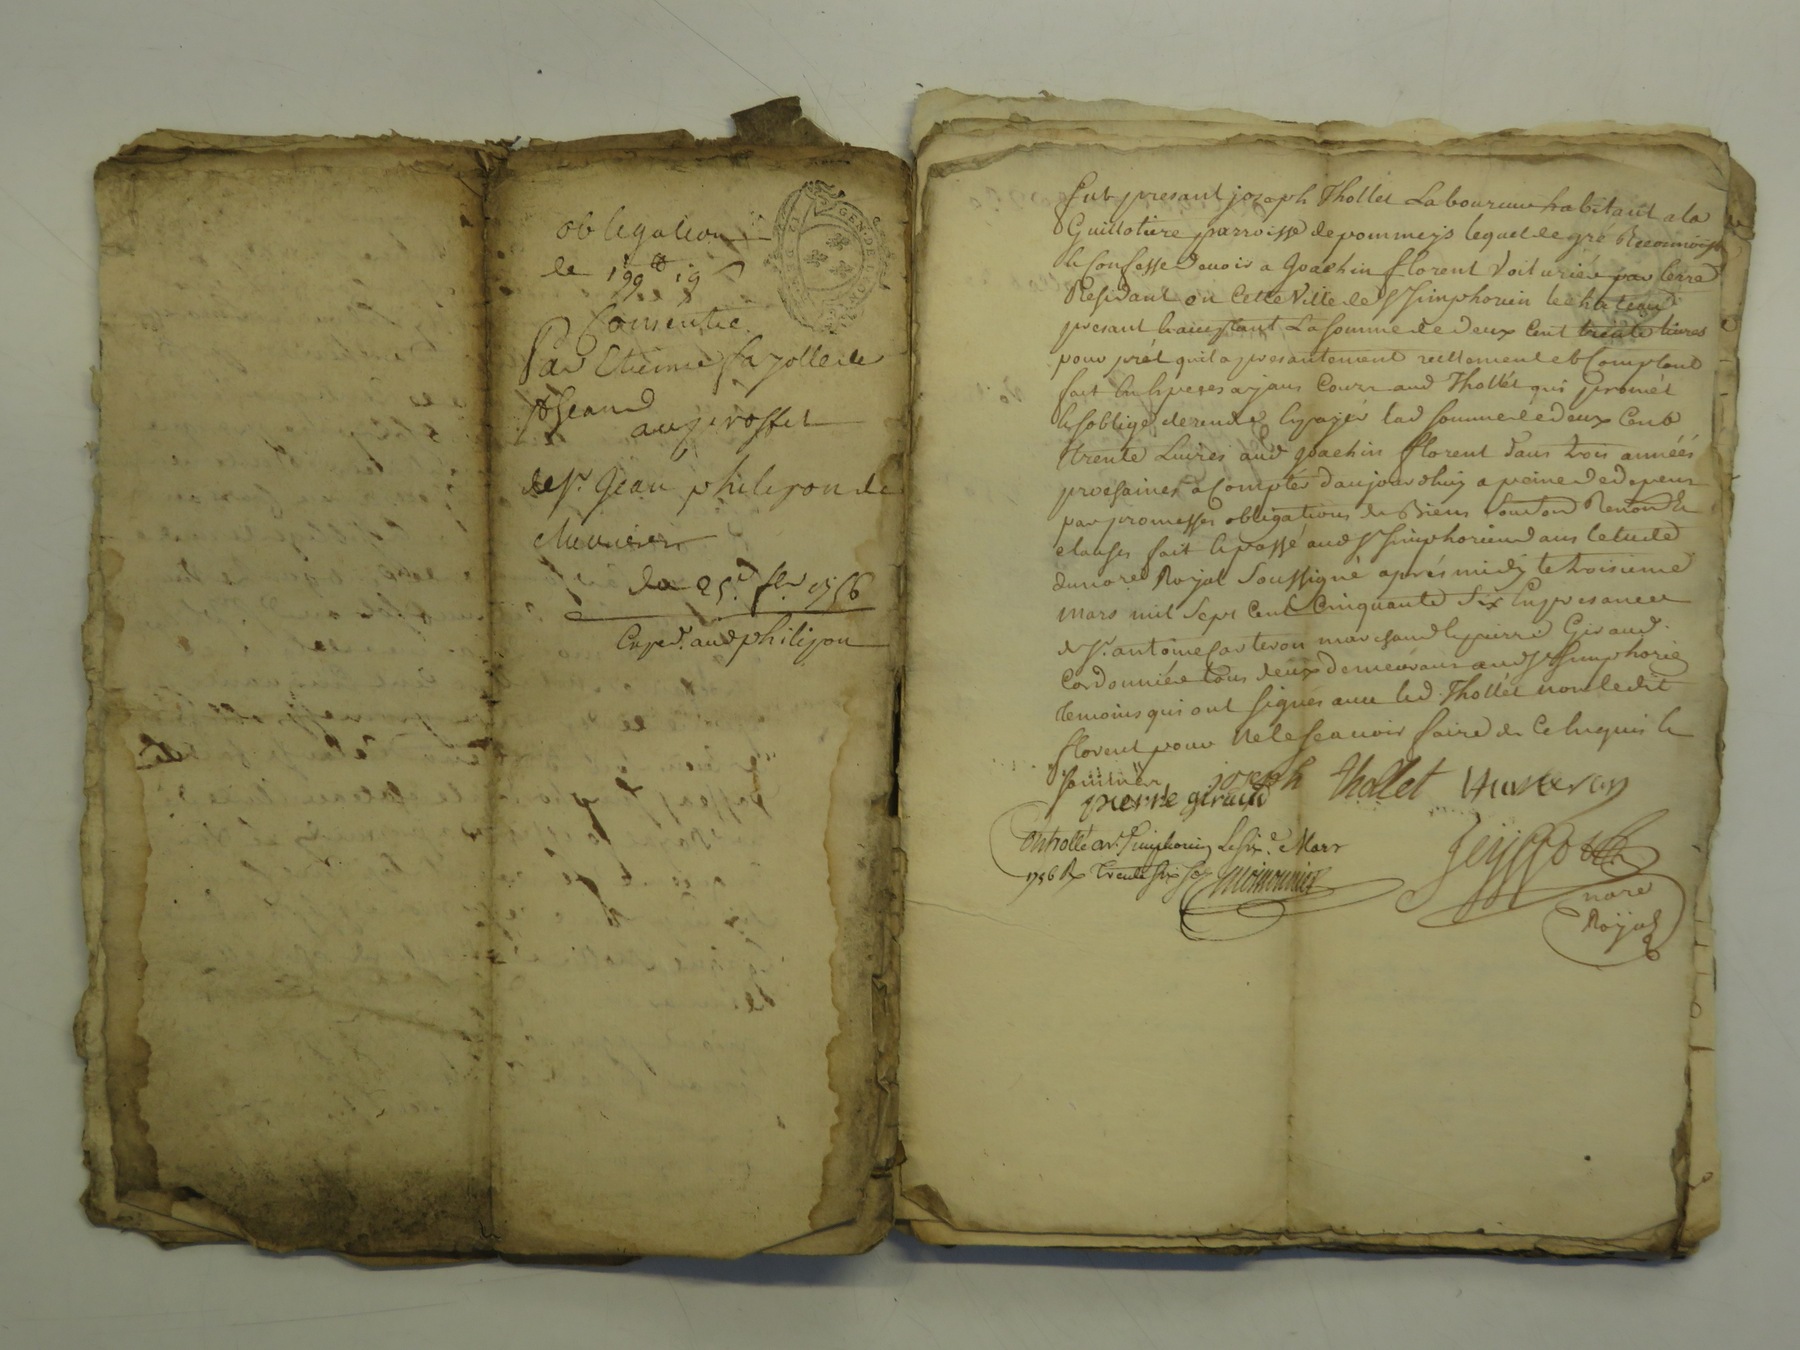 obligation
de 199
Consentie
Par Etienne fayolle de
au proffit
de Sr. Jean philipon de
Meuvieu
du 25e. fer 1756
Exped. aud philipon
GEN. DE L
fut present joseph Thollet Laboureur habitant a la
Guillotiere parroisse de pommeys lequel de gré Reconnoist
& Confesse devoir a Joachin florent Voiturier par terre
Residant en Cette Ville de St Simphorien le chateau
presant & acceptant La somme de deux Cent trente livres
pour prét qu'il a presantement reellement et Comptant
fait en especes ayans Cours aud Thollét qui promét
& s'oblige de rendre & payér lad somme de deux Cent
trente Livres aud Joachin florent dans trois annéés
prochaines a Comptér d'aujourdhuy a peine de depens
par promesses obligations de Biens Renon &
clauses fait & passé aud St Simphorien dans letude
du nore Royal Soussigné aprés midy le troisieme
mars mil sept Cent Cinquante Six En presance
de Sr. antoine marchand & pierre Giraud
Cordonniér tous deux demeurans aud St Simphorien
temoins qui ont signés avec led Thollét non ledit
florent pour ne le scavoir faire de Ce enquis &
sommér
joseph thollet
pierre giraud
Controllé a St. Simphorien Le six e. Mars
1756 Rx trente six sols
nore
Royal